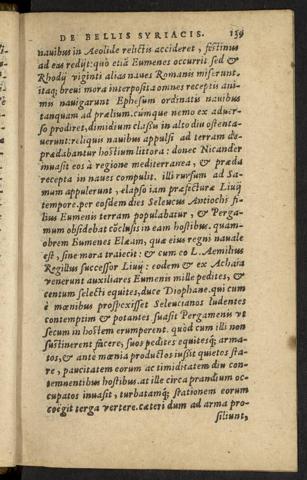 DE BELLIS SYRIACIS. 159
nauibus in Aeolide relictis accideret, festinus
ad eas redijt: quò etiã Eumenes occurrit sed &
Rhodij viginti alias naues Romanis miserunt.
itaq; breui mora interposita omnes receptis ani-
mis nauigarunt Ephesum ordinatis nauibus
tanquam ad prælium. cumque nemo ex aduer-
so prodiret, dimidium classis in alto diu ostenta-
uerunt: reliqui nauibus appulsi ad terram de-
prædabantur hostium littora: donec Nicander
inuasit eos à regione mediterranea, & præda
recepta in naues compulit. illi rursum ad Sa-
mum appulerunt, elapso iam præfecturæ Liuij
tempore. per eosdem dies Seleucus Antiochi fi-
lius Eumenis terram populabatur, & Perga-
mum obsidebat cõclusis in eam hostibus. quam-
obrem Eumenes Elæam, quæ eius regni nauale
est, sine mora traiecit: & cum eo L. Aemilius
Regillus successor Liuij: eodem & ex Achaia
venerunt auxiliares Eumenis mille pedites, &
centum selecti equites, duce Diophane. qui cum
è mœnibus prospexisset Seleucianos ludentes
contemptim & potantes. suasit Pergamenis vt
secum in hostem erumperent. quòd cum illi non
sustinerent facere, suos pedites equitesq; arma-
tos, & ante mœnia productos iussit quietos sta-
re, paucitatem eorum ac timiditatem diu con-
temnentibus hostibus. at ille circa prandium oc-
cupatos inuasit, turbatamq; stationem eorum
coëgit terga vertere. cæteri dum ad arma pro-
siliunt,